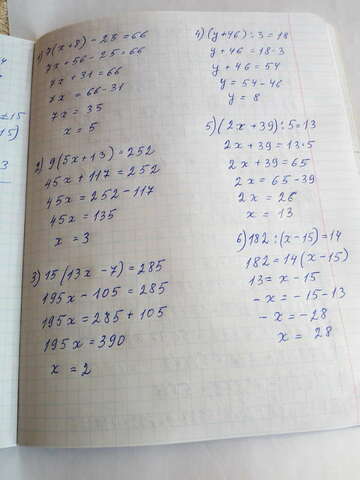 1) 7(x+8)-25=66
7x+56-25=66
7x+31=66
7x=66-31
7x=35
x=5
2) 9(5x+13)=252
45x+117=252
45x=252-117
45x=135
x=3
3) 15(13x-7)=285
195x-105=285
195x=285+105
195x=390
x=2
4) (y+46):3=18
y+46=18·3
y+46=54
y=54-46
y=8
5) (2x+39):5=13
2x+39=13·5
2x+39=65
2x=65-39
2x=26
x=13
6) 182:(x-15)=14
182=14(x-15)
13=x-15
-x=-15-13
-x=-28
x=28